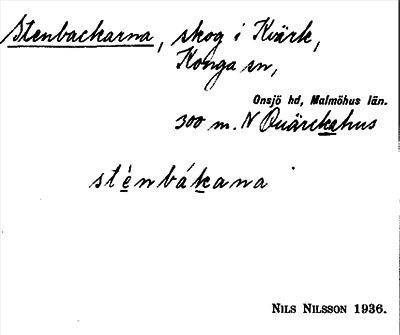 Stenbackarna, skog i Kvärk,
Konga sn,
Onsjö hd, Malmöhus län.
300 m. N Quärckahus
stènbákana
NILS NILSSON 1936.